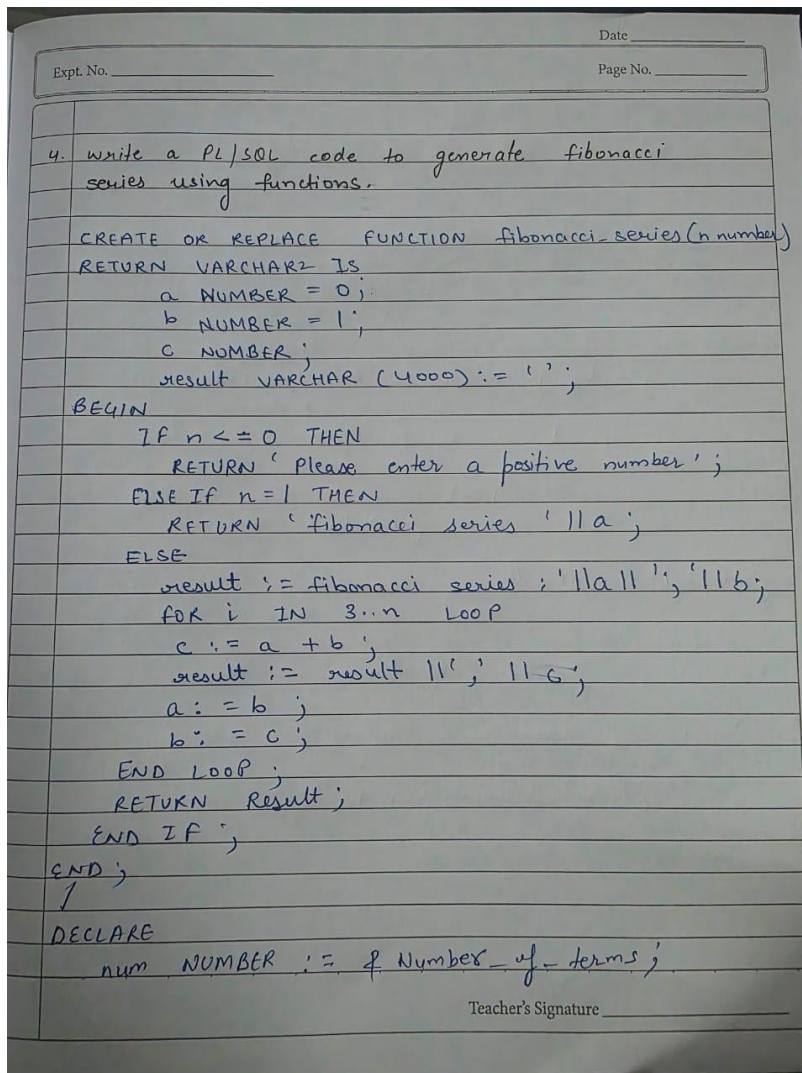 Date
Expt. No.
Page No.
4. write a PL/SQL code to generate fibonacci
series using functions.
CREATE OR REPLACE FUNCTION fibonacci_series(n number)
RETURN VARCHAR2 IS
a NUMBER = 0;
b NUMBER = 1;
c NUMBER;
result VARCHAR (4000) := ' ';
BEGIN
If n <= 0 THEN
RETURN ' Please enter a positive number ';
ELSE If n = 1 THEN
RETURN ' fibonacci series ' || a;
ELSE
result := fibonacci series : '||a|| ', '||b;
foR i IN 3..n LOOP
c := a + b ;
result := result ||',' || c;
a : = b ;
b : = c ;
END LOOP ;
RETURN Result ;
END IF ;
END ;
/
DECLARE
num NUMBER := & Number_of_terms;
Teacher's Signature